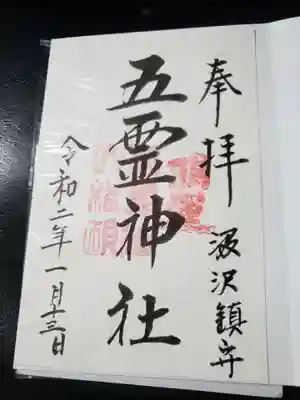 奉拝
汲沢鎮守
五霊神社
令和二年一月十三日